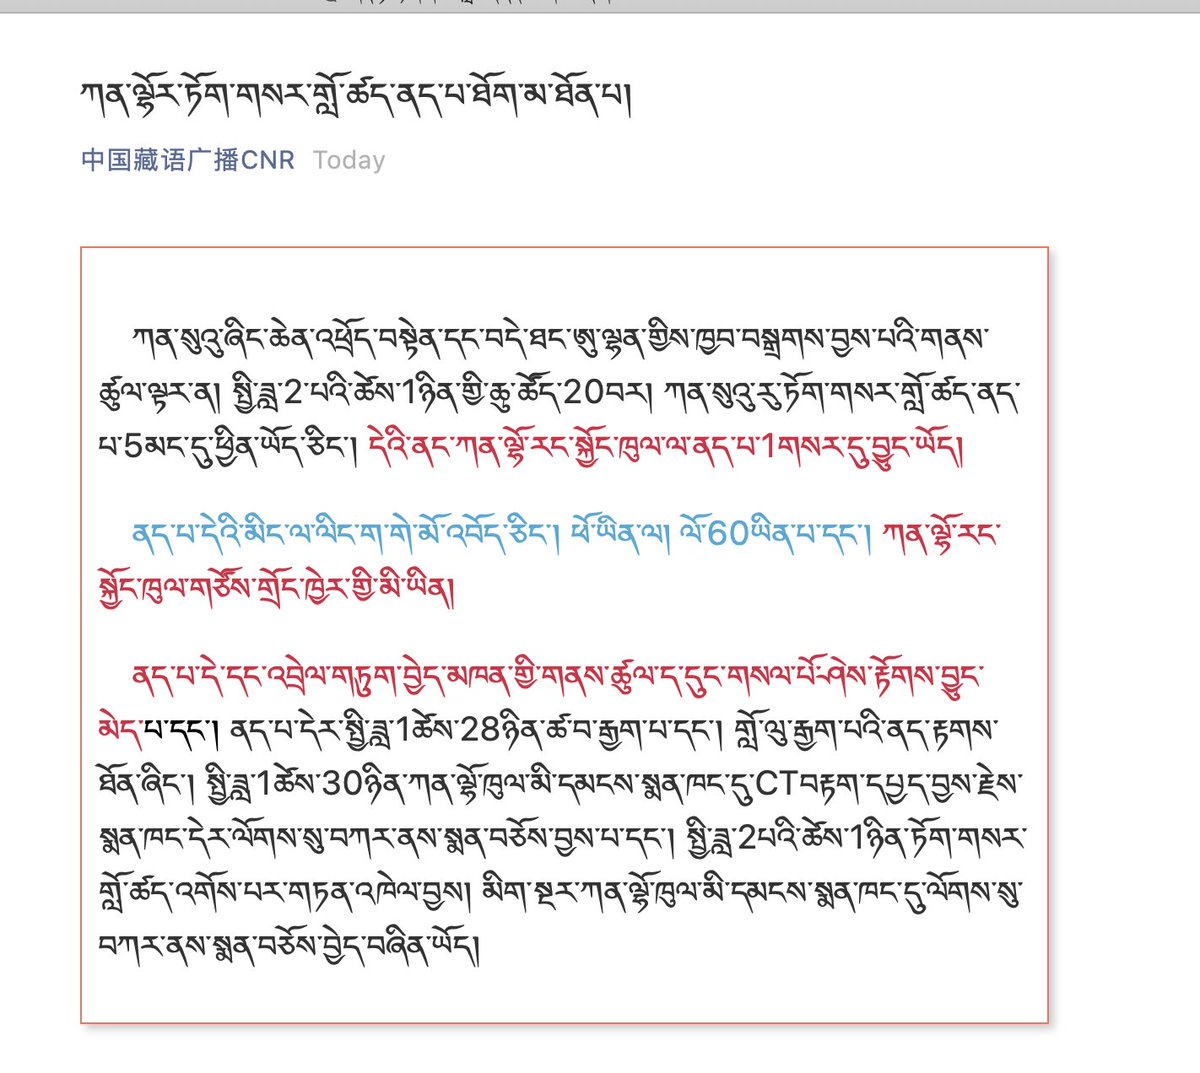 ཀན་ལྷོར་ཏོག་གསར་གློ་ཚད་ནད་པ་ཐོག་མ་ཐོན་པ།
中国藏语广播CNR Today
ཀན་སུའུ་ཞིང་ཆེན་འཕྲོད་བསྟེན་དང་བདེ་ཐང་ཨུ་ལྷན་གྱིས་ཁྱབ་བསྒྲགས་བྱས་པའི་གནས་
ཚུལ་ལྟར་ན། སྤྱི་ཟླ་2་པའི་ཚེས་1ཉིན་གྱི་ཆུ་ཚོད་20བར། ཀན་སུའུ་རུ་ཏོག་གསར་གློ་ཚད་ནད་
པ་5མང་དུ་ཕྱིན་ཡོད་ཅིང་། དེའི་ནང་ཀན་ལྷོ་རང་སྐྱོང་ཁུལ་ལ་ནད་པ་1གསར་དུ་བྱུང་ཡོད།
ནད་པ་དེའི་མིང་ལ་ལིང་ག་གེ་མོ་འབོད་ཅིང་། ཕོ་ཡིན་ལ། ལོ་60ཡིན་པ་དང་། ཀན་ལྷོ་རང་
སྐྱོང་ཁུལ་གཙོས་གྲོང་ཁྱེར་གྱི་མི་ཡིན།
ནད་པ་དེ་དང་འབྲེལ་གཏུག་བྱེད་མཁན་གྱི་གནས་ཚུལ་ད་དུང་གསལ་པོ་ཤེས་རྟོགས་བྱུང་
མེད་པ་དང་། ནད་པ་དེར་སྤྱི་ཟླ་1ཚེས་28ཉིན་ཚ་བ་རྒྱག་པ་དང་། གློ་ལུ་རྒྱག་པའི་ནད་རྟགས་
ཐོན་ཞིང་། སྤྱི་ཟླ་1ཚེས་30ཉིན་ཀན་ལྷོ་ཁུལ་མི་དམངས་སྨན་ཁང་དུ་CTབརྟག་དཔྱད་བྱས་རྗེས་
སྨན་ཁང་དེར་ལོགས་སུ་བཀར་ནས་སྨན་བཅོས་བྱས་པ་དང་། སྤྱི་ཟླ་2པའི་ཚེས་1ཉིན་ཏོག་གསར་
གློ་ཚད་འགོས་པར་གཏན་འཁེལ་བྱས། མིག་སྔར་ཀན་ལྷོ་ཁུལ་མི་དམངས་སྨན་ཁང་དུ་ལོགས་སུ་
བཀར་ནས་སྨན་བཅོས་བྱེད་བཞིན་ཡོད།